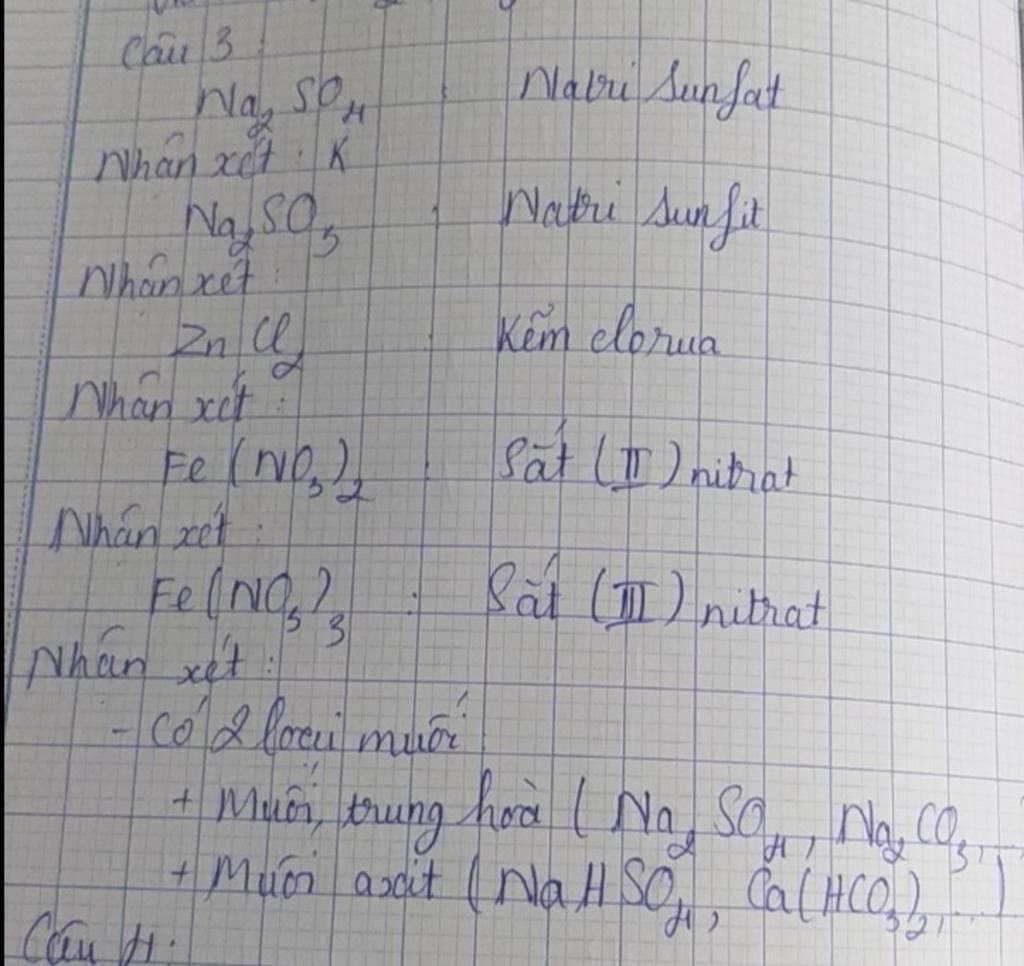 Câu 3
Na₂SO₄ : Natri sunfat
Nhận xét : K
Na₂SO₃ : Natri sunfit
Nhận xét :
ZnCl₂ : Kẽm clorua
Nhận xét :
Fe(NO₃)₂ : Sắt (II) nitrat
Nhận xét :
Fe(NO₃)₃ : Sắt (III) nitrat
Nhận xét :
- Có 2 loại muối
+ Muối trung hoà ( Na₂SO₄, Na₂CO₃,
+ Muối axit ( NaHSO₄, Ca(HCO₃)₂, ...)
Câu 4 :